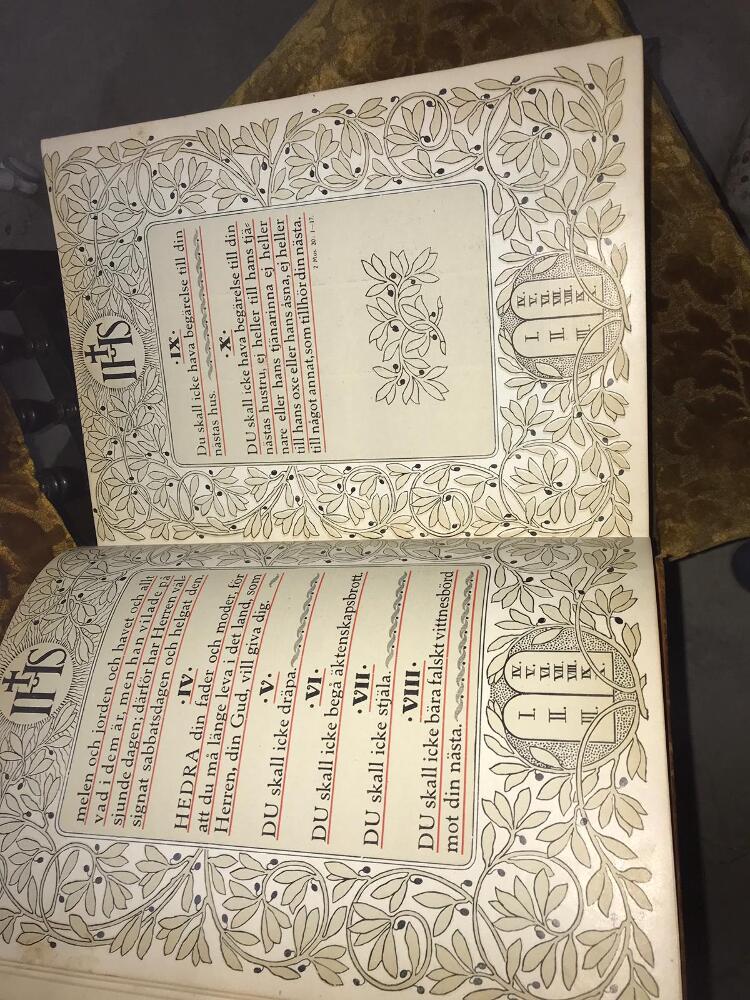 IHS
melen och jorden och havet och allt
vad i dem är, men han vilade på
sjunde dagen; därför har Herren väl-
signat sabbatsdagen och helgat den.
·IV·
HEDRA din fader och moder, för
att du må länge leva i det land, som
Herren, din Gud, vill giva dig.
·V·
DU skall icke dräpa.
·VI·
DU skall icke begå äktenskapsbrott
·VII·
DU skall icke stjäla.
·VIII·
DU skall icke bära falskt vittnesbörd
mot din nästa.
I. IV.
V.
II. VI.
VII.
VIII.
III. IX.
X.
IHS
·IX·
Du skall icke hava begärelse till din
nästas hus.
·X·
DU skall icke hava begärelse till din
nästas hustru, ej heller till hans tjä-
nare eller hans tjänarinna ej heller
till hans oxe eller hans åsna, ej heller
till något annat, som tillhör din nästa.
2 Mos. 20: 1–17.
I. IV.
V.
II. VI.
VII.
VIII.
III. IX.
X.